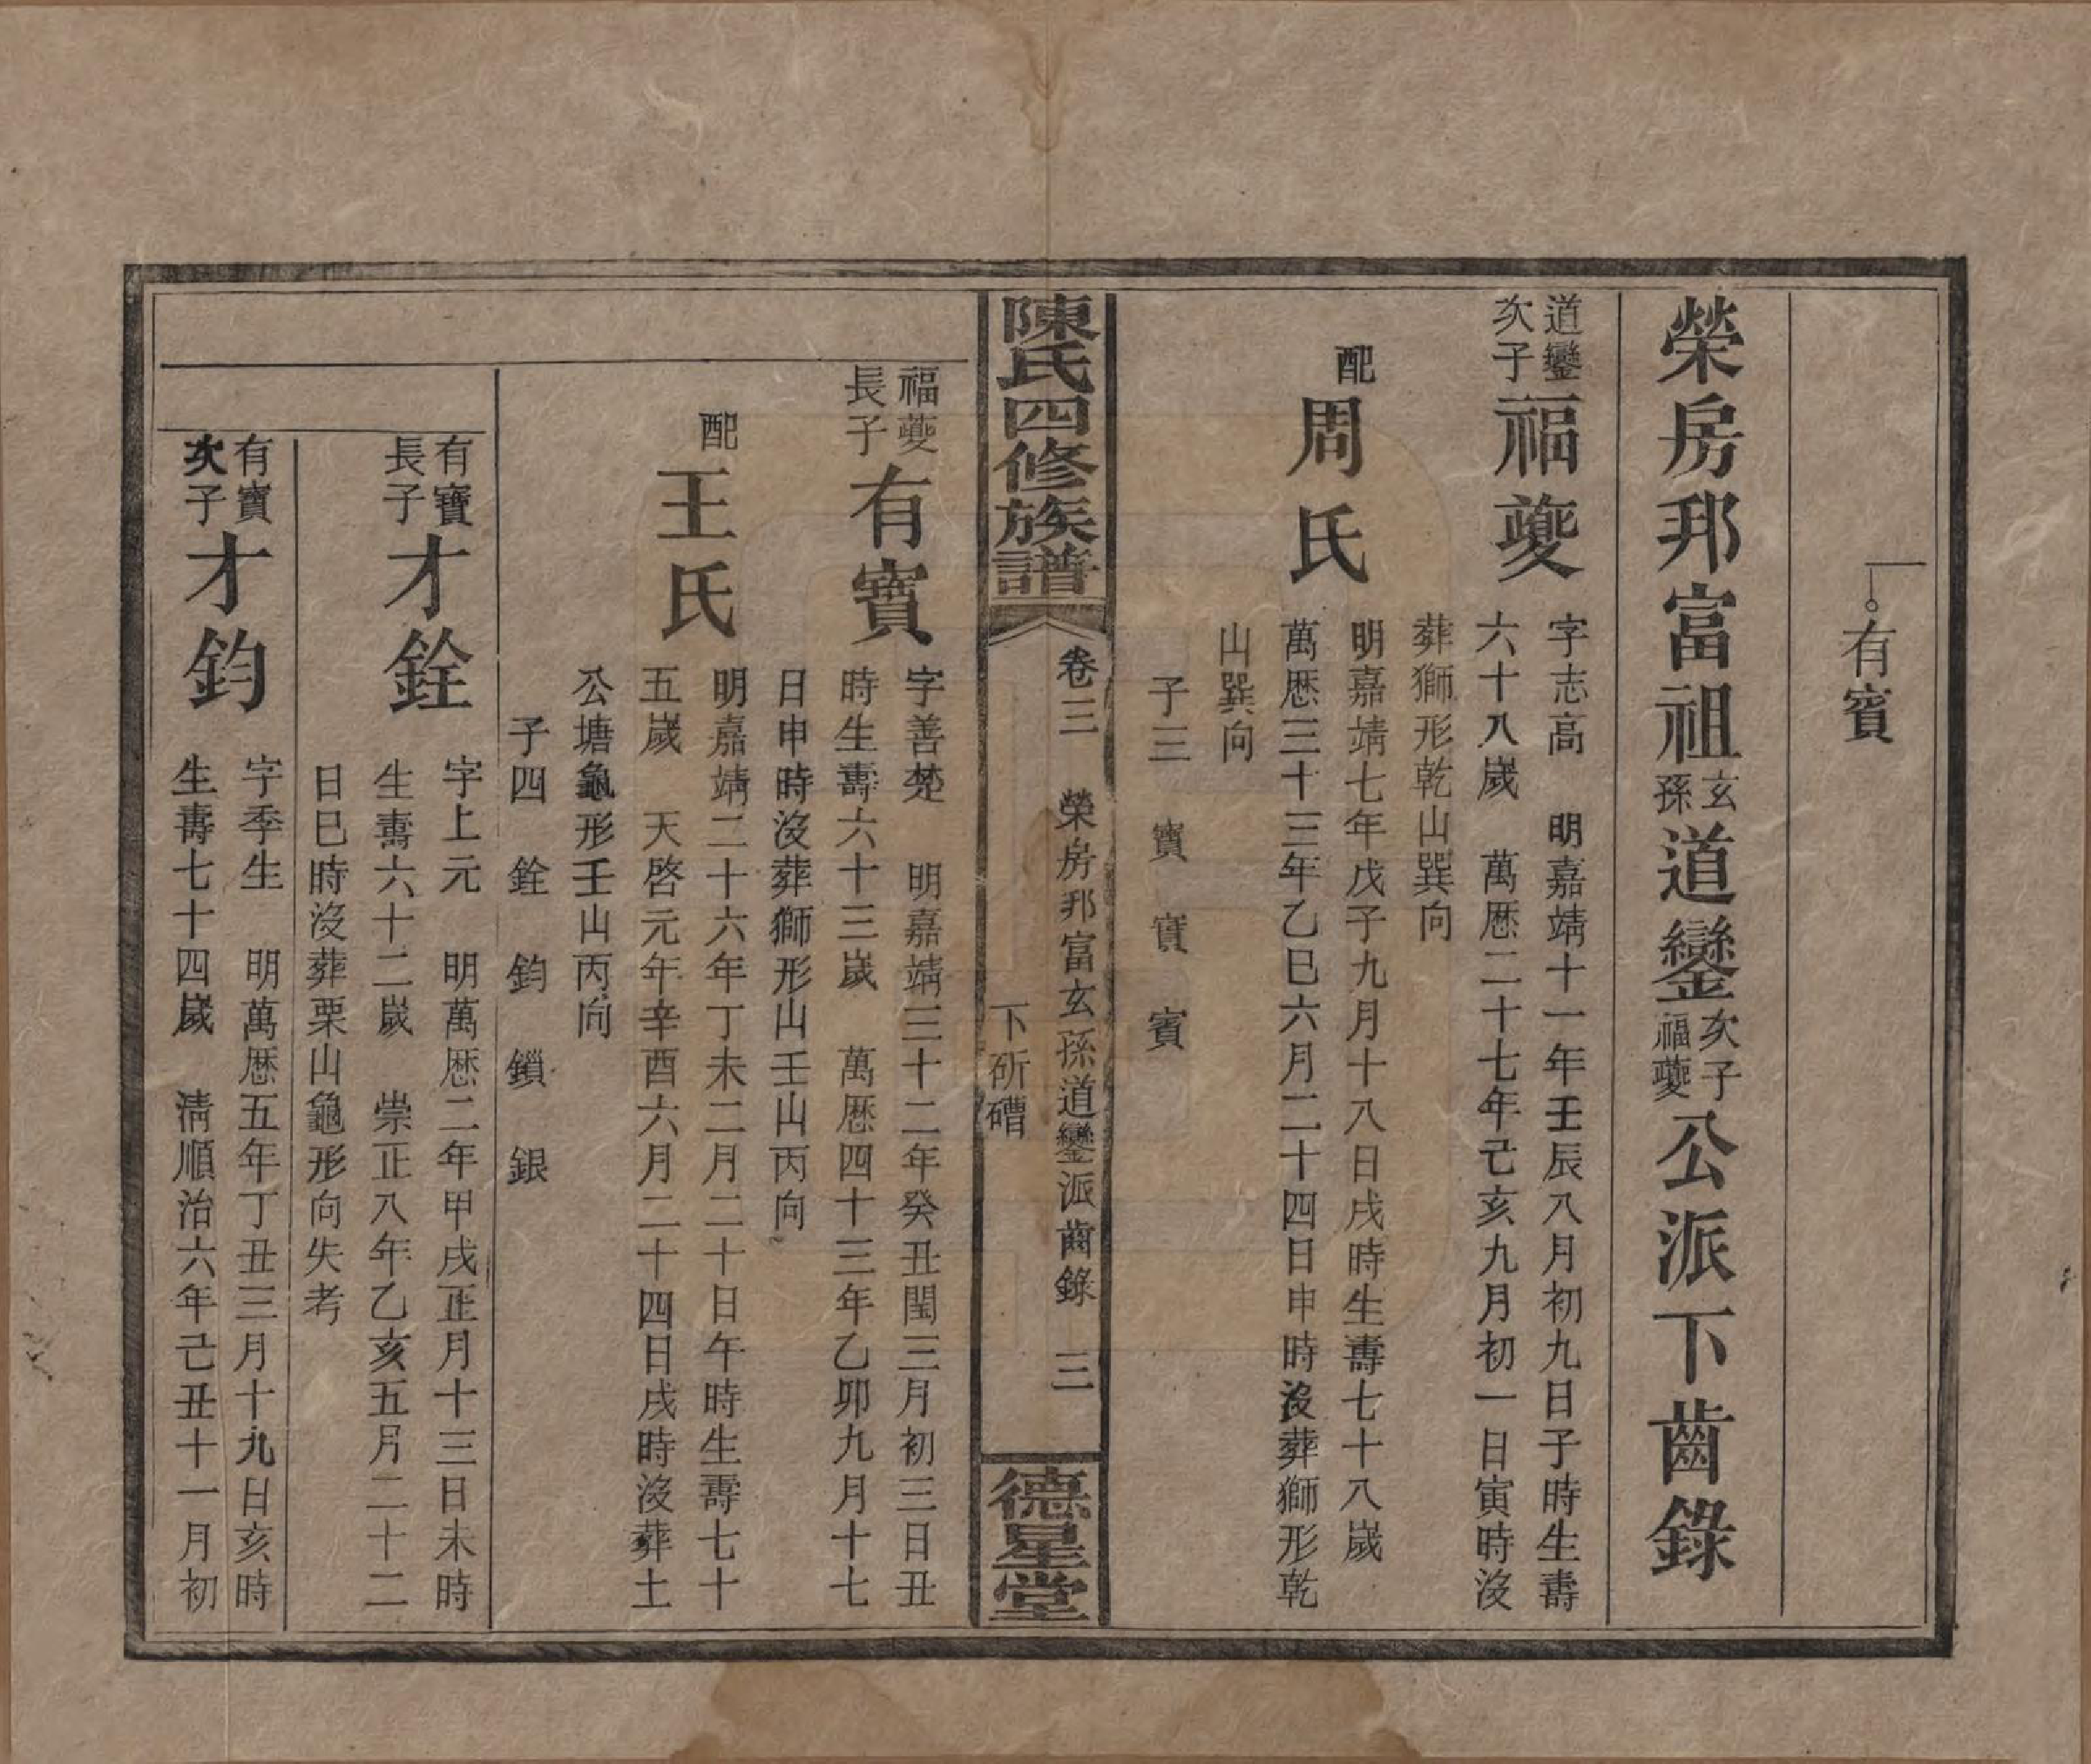 有賓
榮房邦富祖玄孫道鑾次子福夔公派下齒錄
道鑾次子福夔
字志高 明嘉靖十一年壬辰八月初九日子時生壽
六十八歲 萬曆二十七年己亥九月初一日寅時沒
葬獅形乾山巽向
配周氏
明嘉靖七年戊子九月十八日戌時生壽七十八歲
萬曆三十三年乙巳六月二十四日申時沒葬獅形乾
山巽向
子三 寶 實 賓
陳氏四修族譜
卷三 榮房邦富玄孫道鑾派齒錄 三
下斫磳
德星堂
福夔長子有寶
字善楚 明嘉靖三十二年癸丑閏三月初三日丑
時生壽六十三歲 萬曆四十三年乙卯九月十七
日申時沒葬獅形山壬山丙向
配王氏
明嘉靖二十六年丁未二月二十日午時生壽七十
五歲 天啓元年辛酉六月二十四日戌時沒葬土
公塘龜形壬山丙向
子四 銓 鈞 鎖 銀
有寶長子才銓
字上元 明萬曆二年甲戌正月十三日未時
生壽六十二歲 崇正八年乙亥五月二十二
日巳時沒葬栗山龜形向失考
有寶次子才鈞
字季生 明萬曆五年丁丑三月十九日亥時
生壽七十四歲 清順治六年己丑十一月初